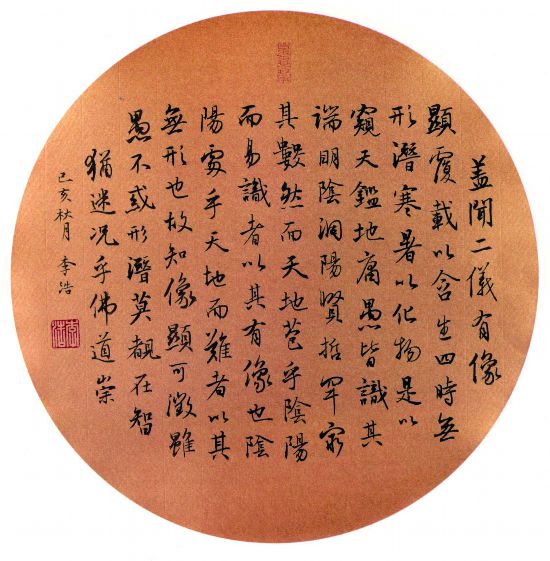 盖聞二儀有像
顯覆載以含生四時無
形潛寒暑以化物是以
窺天鑑地庸愚皆識其
端明陰洞陽賢哲罕窮
其數然而天地苞乎陰陽
而易識者以其有像也陰
陽處乎天地而難者以其
無形也故知像顯可徵雖
愚不惑形潛莫覩在智
猶迷況乎佛道崇
己亥秋月 李浩